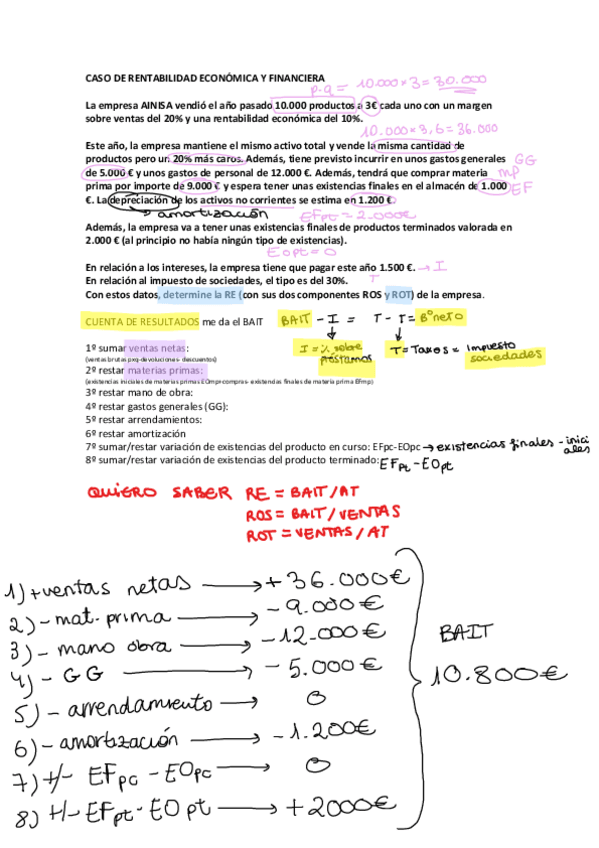 CASO DE RENTABILIDAD ECONÓMICA Y FINANCIERA
p.q = 10.000 x 3 = 30.000
La empresa AINISA vendió el año pasado 10.000 productos a 3€ cada uno con un margen
sobre ventas del 20% y una rentabilidad económica del 10%.
10.000 x 3,6 = 36.000
Este año, la empresa mantiene el mismo activo total y vende la misma cantidad de
productos pero un 20% más caros. Además, tiene previsto incurrir en unos gastos generales GG
de 5.000 € y unos gastos de personal de 12.000 €. Además, tendrá que comprar materia mp
prima por importe de 9.000 € y espera tener unas existencias finales en el almacén de 1.000 EF
€. La depreciación de los activos no corrientes se estima en 1.200 €.
→ amortización EFpt = 2.000€
Además, la empresa va a tener unas existencias finales de productos terminados valorada en
2.000 € (al principio no había ningún tipo de existencias).
EOpt = 0
En relación a los intereses, la empresa tiene que pagar este año 1.500 €. → I
En relación al impuesto de sociedades, el tipo es del 30%. T
Con estos datos, determine la RE (con sus dos componentes ROS y ROT) de la empresa.
CUENTA DE RESULTADOS me da el BAIT BAIT - I = T - T = Bº neto
1º sumar ventas netas: I = % sobre préstamos T = Taxos = impuesto sociedades
(ventas brutas pxq-devoluciones- descuentos)
2º restar materias primas:
(existencias iniciales de materias primas EOmp+compras+ existencias finales de materia prima EFmp)
3º restar mano de obra:
4º restar gastos generales (GG):
5º restar arrendamientos:
6º restar amortización
7º sumar/restar variación de existencias del producto en curso: EFpc-EOpc → existencias finales - iniciales
8º sumar/restar variación de existencias del producto terminado: EFpt - EOpt
QUIERO SABER RE = BAIT/AT
ROS = BAIT/VENTAS
ROT = VENTAS/AT
1) + ventas netas → + 36.000€
2) - mat. prima → - 9.000€
3) - mano obra → - 12.000€
4) - GG → - 5.000€
5) - arrendamiento → 0
6) - amortización → - 1.200€
7) +/- EFpc - EOpc → 0
8) +/- EFpt - EOpt → + 2000€
BAIT
10.800€